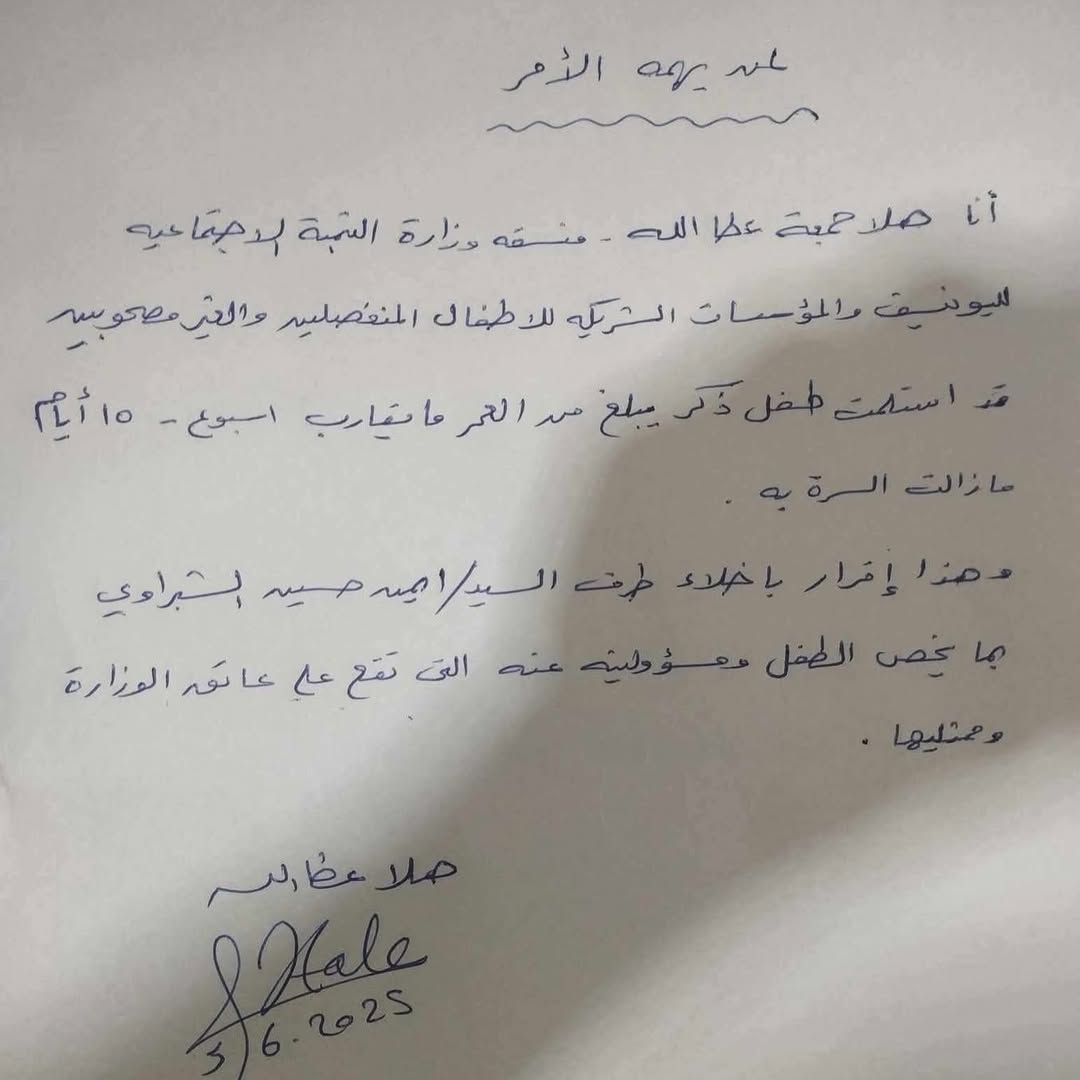 لمن يهمه الأمر
أنا هلا جمعة عطا الله - منسقه وزارة التنمية الاجتماعيه
لليونيسيف والمؤسسات الشريكه للاطفال المنفصلين والغير مصحوبين
قد استلمت طفل ذكر يبلغ من العمر ما يقارب اسبوع - ١٥ أيام
مازالت السرة به .
وهذا إقرار باخلاء طرف السيد/ايمن حسين الشبراوي
بما يخص الطفل ومسؤوليته عنه التى تقع على عاتق الوزارة
وممثليها .
هلا عطاالله
Hala
3/6.2025